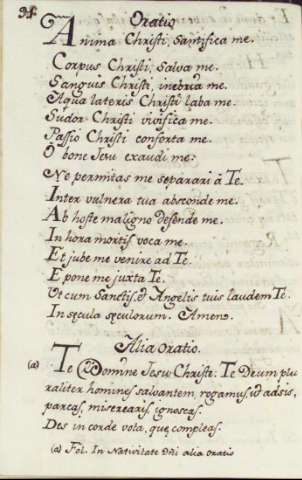 94.
Oratio
Anima Christi, Santifica me.
Corpus Christi, salva me.
Sanguis Christi, inebria me.
Aqua lateris Christi laba me.
Sudor Christi vivifica me.
Passio Christi conforta me.
O bone Jesu exaudi me.
Ne permitas me separari à Te.
Inter vulnera tua absconde me.
Ab hoste maligno defende me.
In hora mortis voca me.
Et jube me venire ad Te.
E pone me juxta Te.
Ut cum Sanctis, & Angelis tuis laudem Te.
In sęcula sęculorum. Amen.
Alia Oratio.
(a) Te Domine Jesu Christe: Te Deum plu
raliter homines salvantem, rogamus, & adsis,
parcas, miserearis, ignoscas.
Des in corde vota, quę compleas.
(a) Fol. In Nativitate Dñi alia oratio